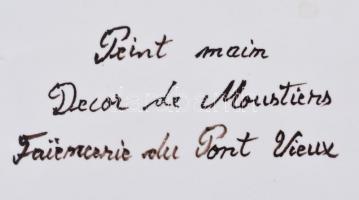 Peint main
Decor de Moustiers
Faïencerie du Pont Vieux